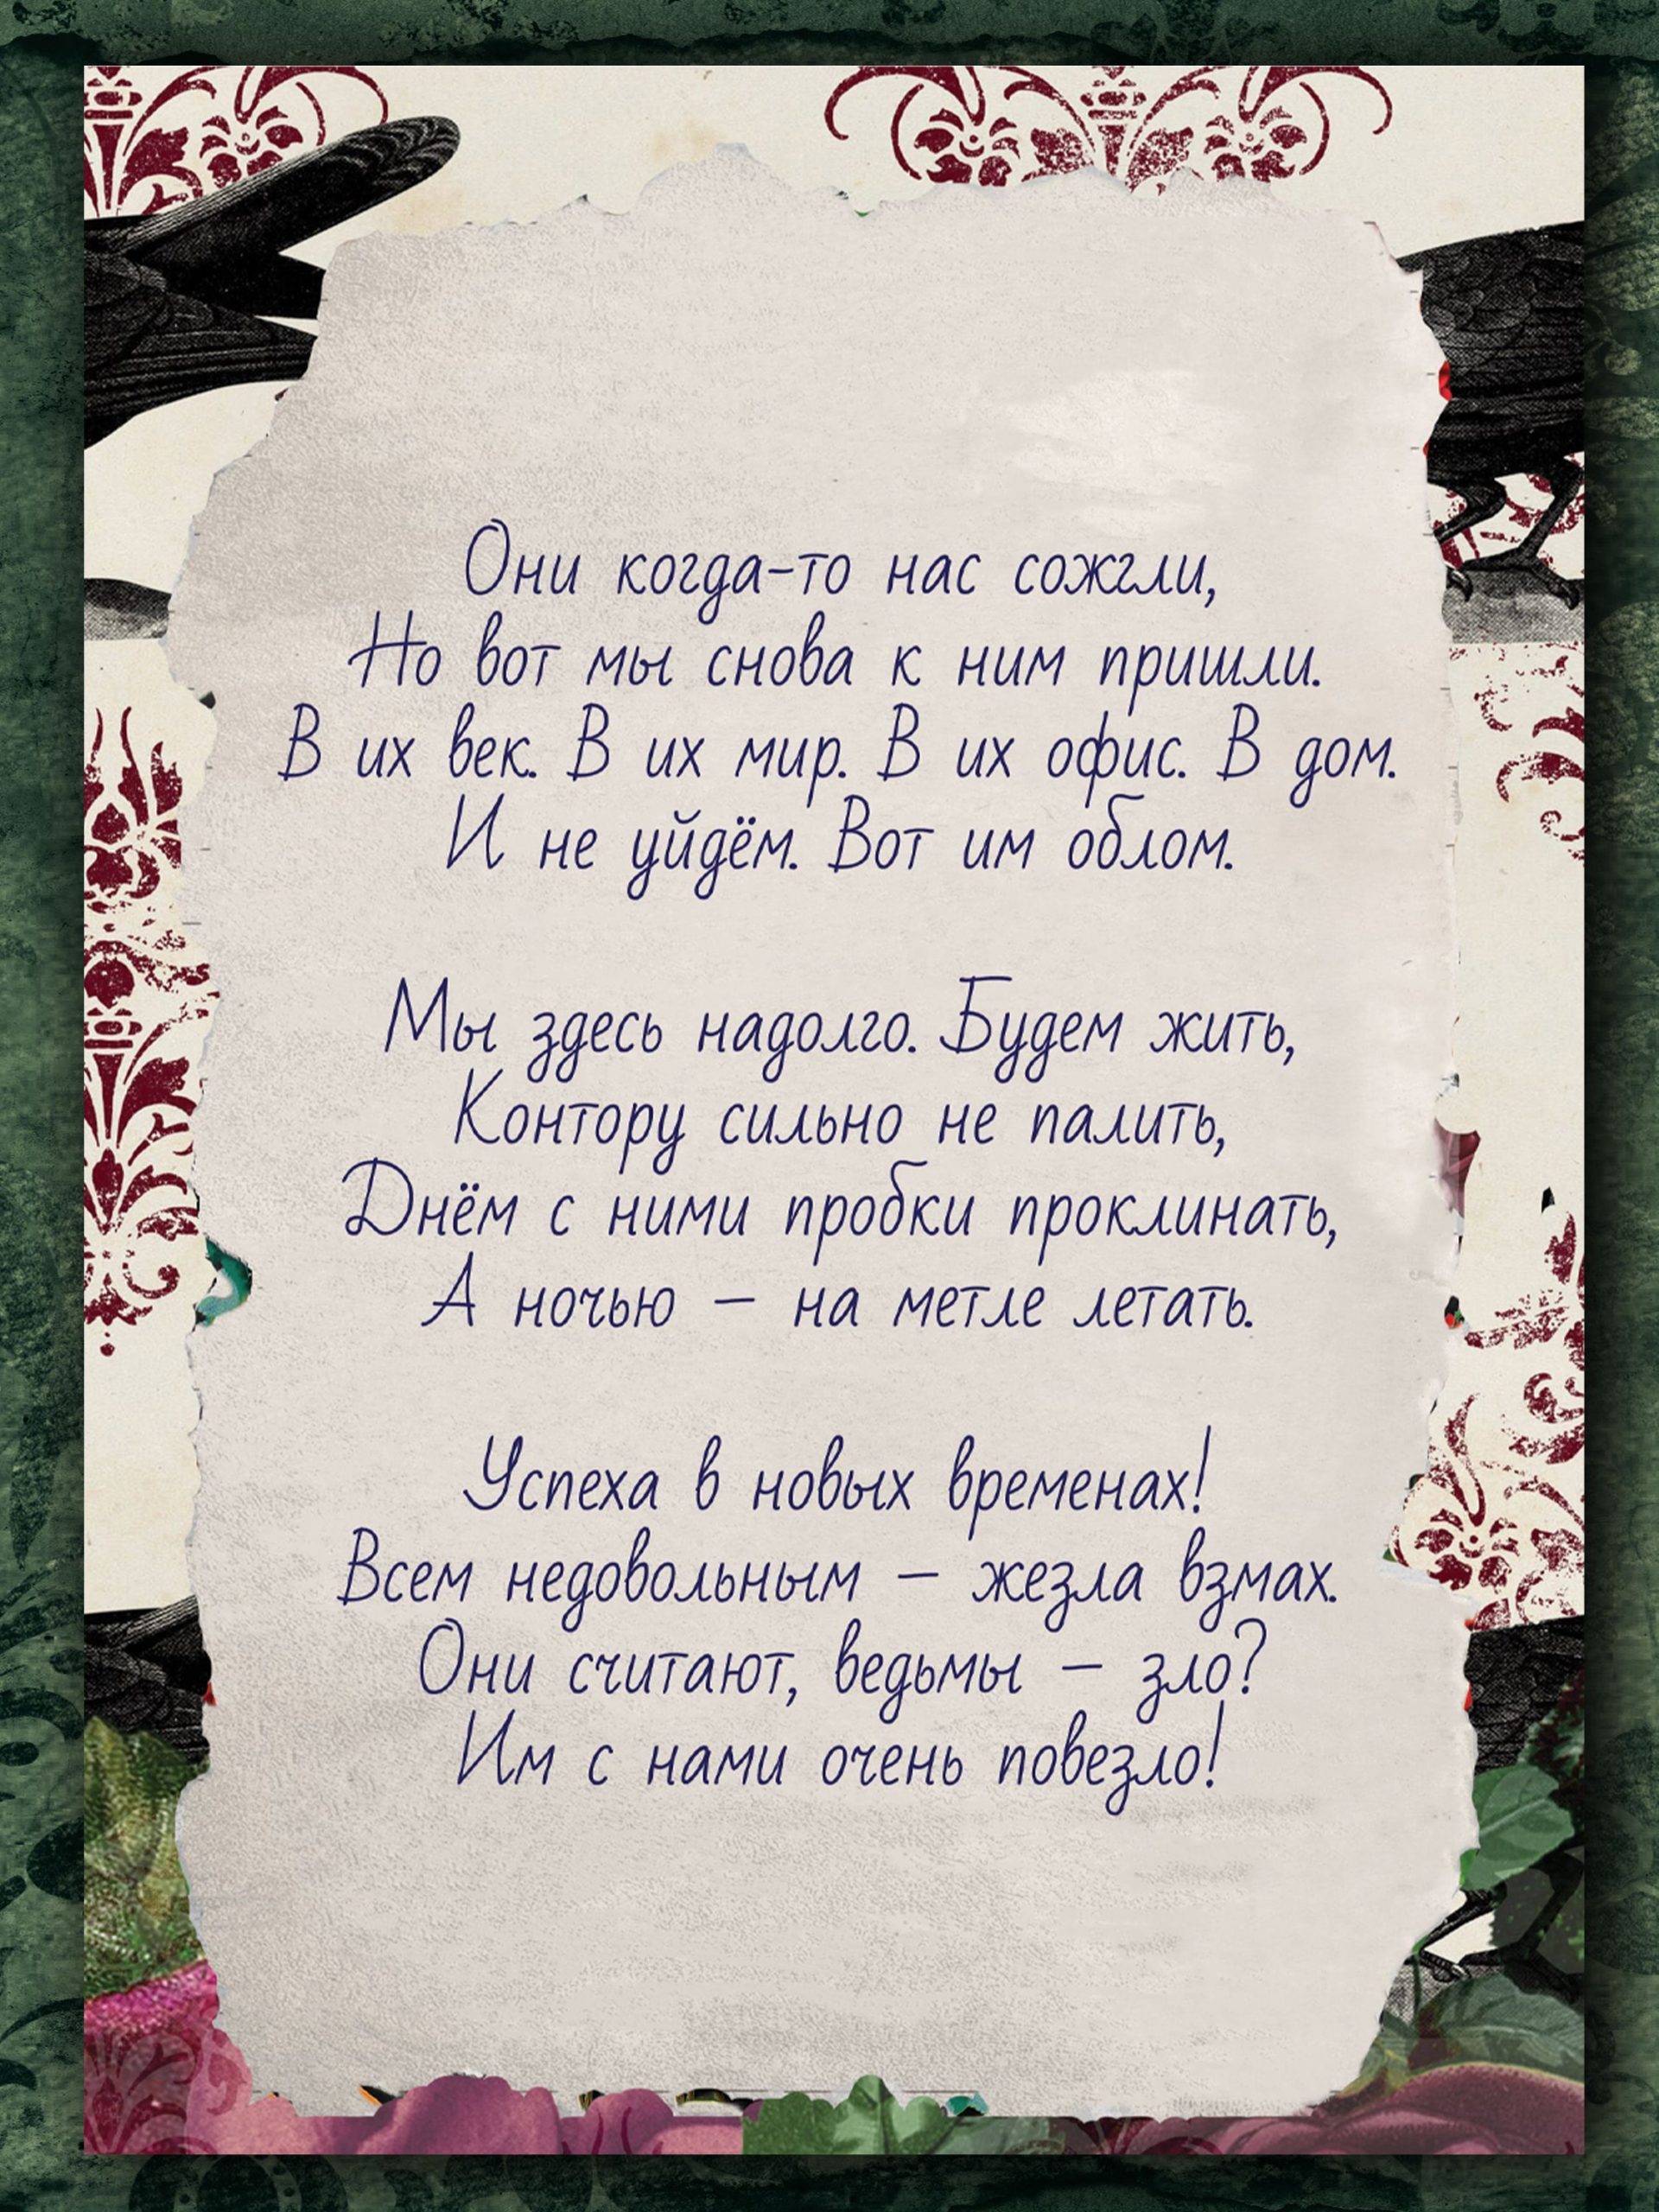 Они когда-то нас сожгли,
Но вот мы снова к ним пришли.
В их век. В их мир. В их офис. В дом.
И не уйдём. Вот им облом.
Мы здесь надолго. Будем жить,
Контору сильно не палить,
Днём с ними пробки проклинать,
А ночью — на метле летать.
Успеха в новых временах!
Всем недовольным — жезла взмах.
Они считают, ведьмы — зло?
Им с нами очень повезло!